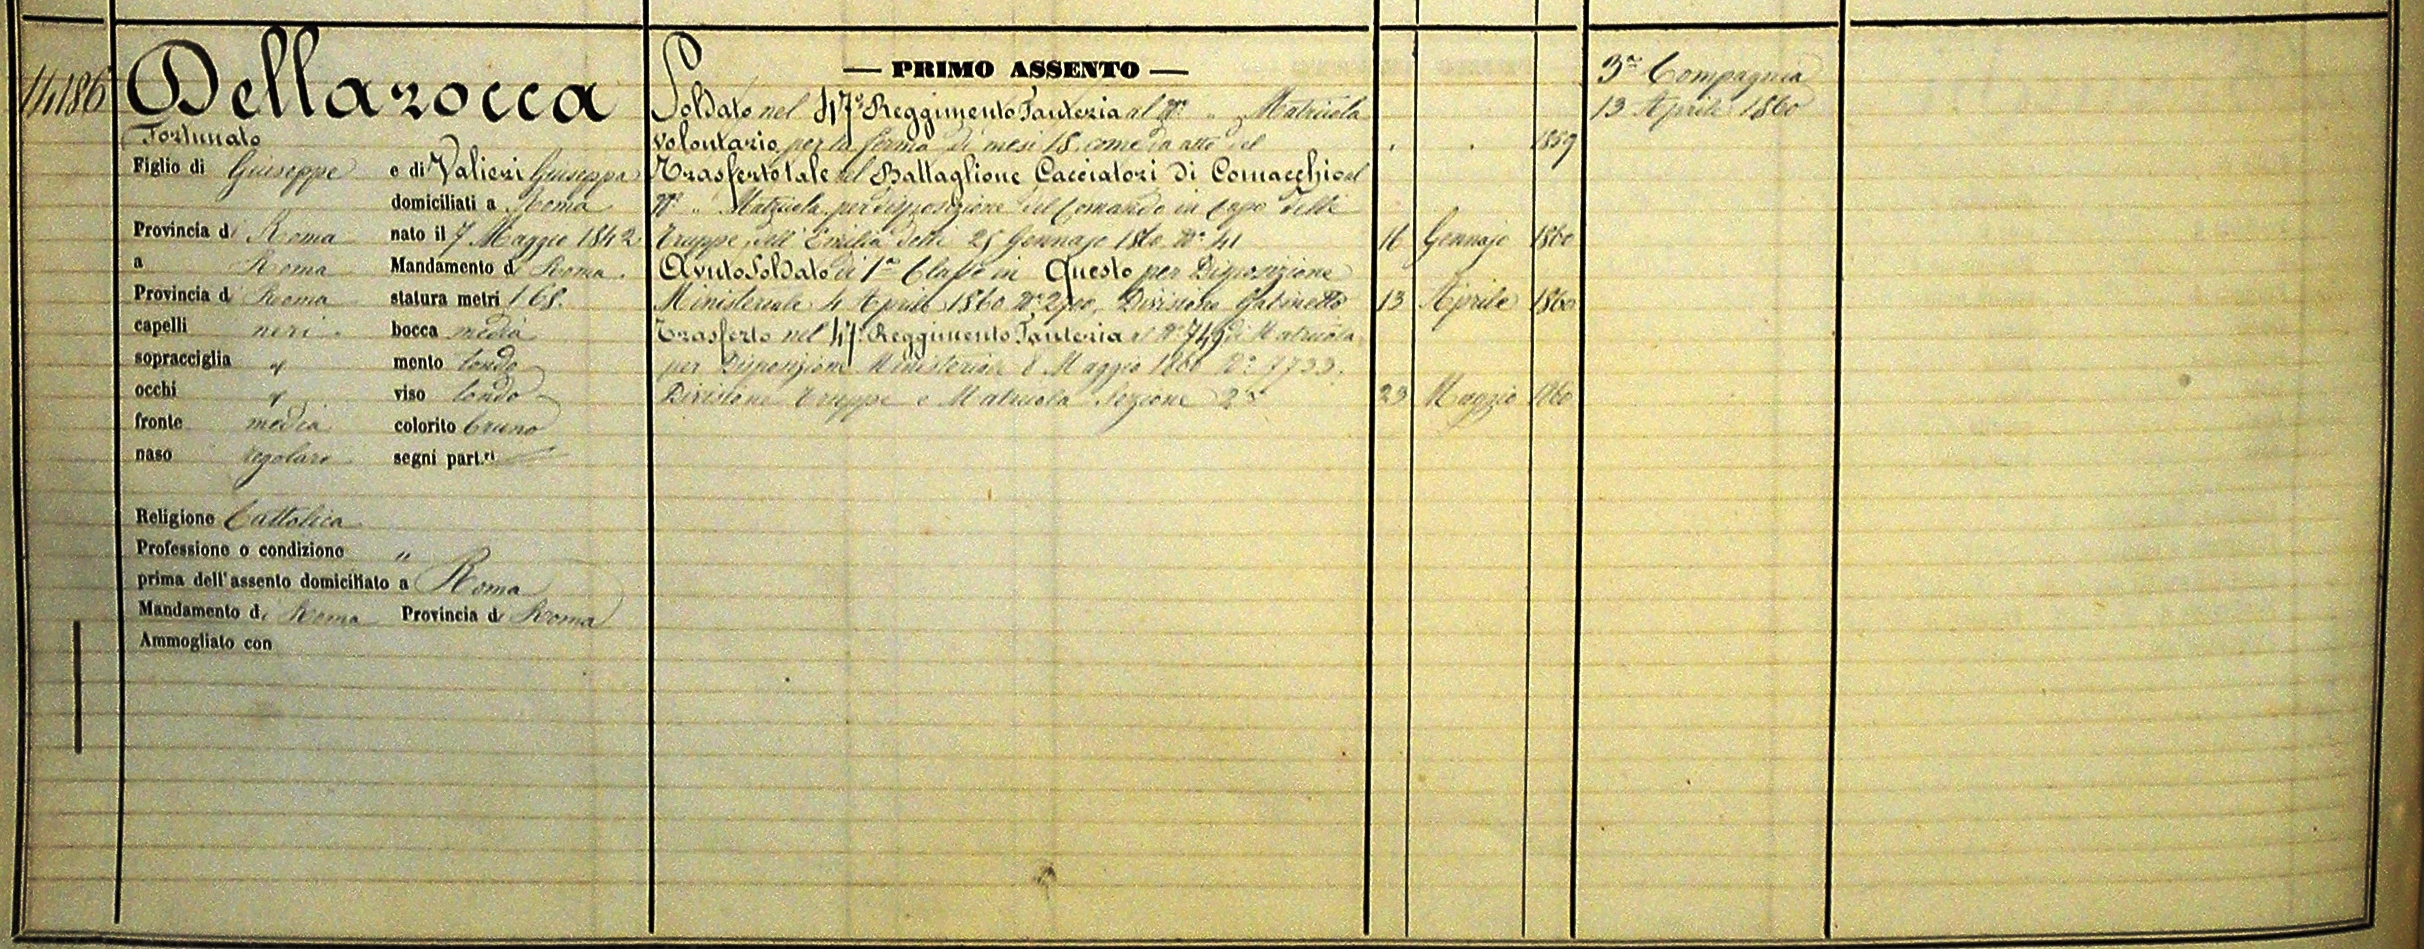 14186
Dellarocca
Fortunato
Figlio di Giuseppe e di Valieri Giuseppa
domiciliati a Roma
Provincia di Roma nato il 7 Maggio 1842
a Roma Mandamento di Roma
Provincia di Roma statura metri 1.68.
capelli neri bocca media
sopracciglia id mento tondo
occhi id viso tondo
fronte media colorito bruno
naso regolare segni part.ri
Religione Cattolica
Professione o condizione "
prima dell'assento domiciliato a Roma
Mandamento di Roma Provincia di Roma
Ammogliato con
— PRIMO ASSENTO —
Soldato nel 47° Reggimento Fanteria al N° " Matricola
volontario per la ferma di mesi 18 come da atto del . . 1859
Trasferto tale nel Battaglione Cacciatori di Comacchio al
N° " Matricola per disposizione del Comando in Capo delle
truppe dell'Emilia delli 25 Gennajo 1860 N° 41 16 Gennajo 1860
Avuto Soldato di 1a Classe in Questo per Disposizione
Ministeriale 4 Aprile 1860 N° Divisione Gabinetto 13 Aprile 1860
Trasferto nel 47° Reggimento Fanteria al N° 749 di Matricola
per Disposizione Ministeriale 8 Maggio 1860 N° 7733.
Divisione Truppe e Matricola Sezione 2a 23 Maggio 1860
3a Compagnia
13 Aprile 1860